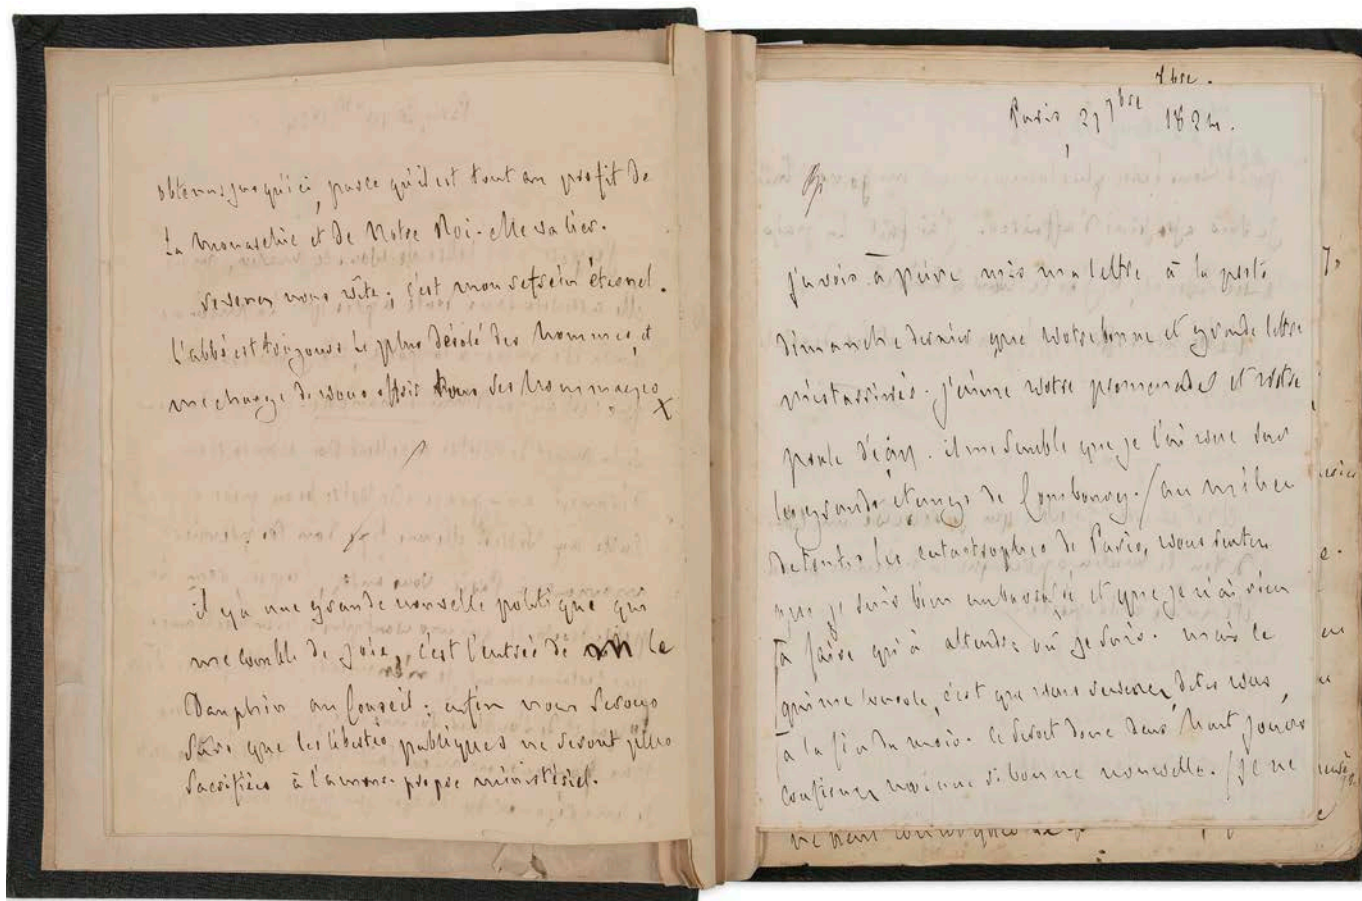 obtenus jusqu'ici, parce qu'il est tout au profit de
la monarchie et de notre Roi-chevalier.
revenez nous vite. c'est mon refrein éternel.
l'abbé est toujours le plus désolé des hommes, et
me charge de vous offrir tous ses hommages
il y a une grande nouvelle politique qui
me comble de joie, c'est l'entrée de M le
Dauphin au Conseil; enfin nous serons
sûrs que les libertés publiques ne seront plus
sacrifiées à l'amour-propre ministériel.
7bre.
Paris 27 7bre 1824.
j'avois à peine mis ma lettre à la poste
dimanche dernier que votre bonne et grande lettre
m'est arrivée. j'aime votre promenade et votre
poule d'eau. il me semble que je l'ai vue sur
les grands étangs de Combourg. / au milieu
de toutes les catastrophes de Paris, vous sentez
que je suis bien embarrassé et que je n'ai rien
à faire qu'à attendre où je suis. mais ce
qui me console, c'est que vous revenez, dites vous,
à la fin du mois. ce seroit donc dans huit jours
confirmez moi une si bonne nouvelle. / je ne